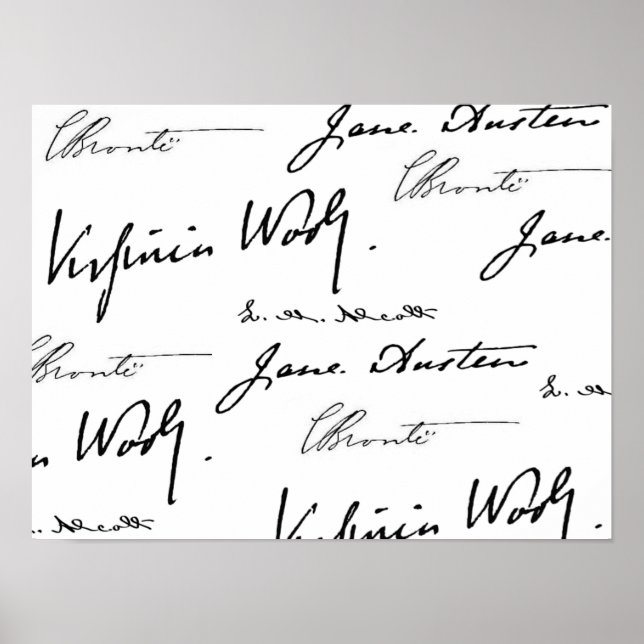 CBrontë Jane. Austen
CBrontë
Virginia Woolf. Jane.
L. M. Alcott
Brontë Jane. Austen
L. M
Woolf. CBrontë
M. Alcott
Virginia Woolf.